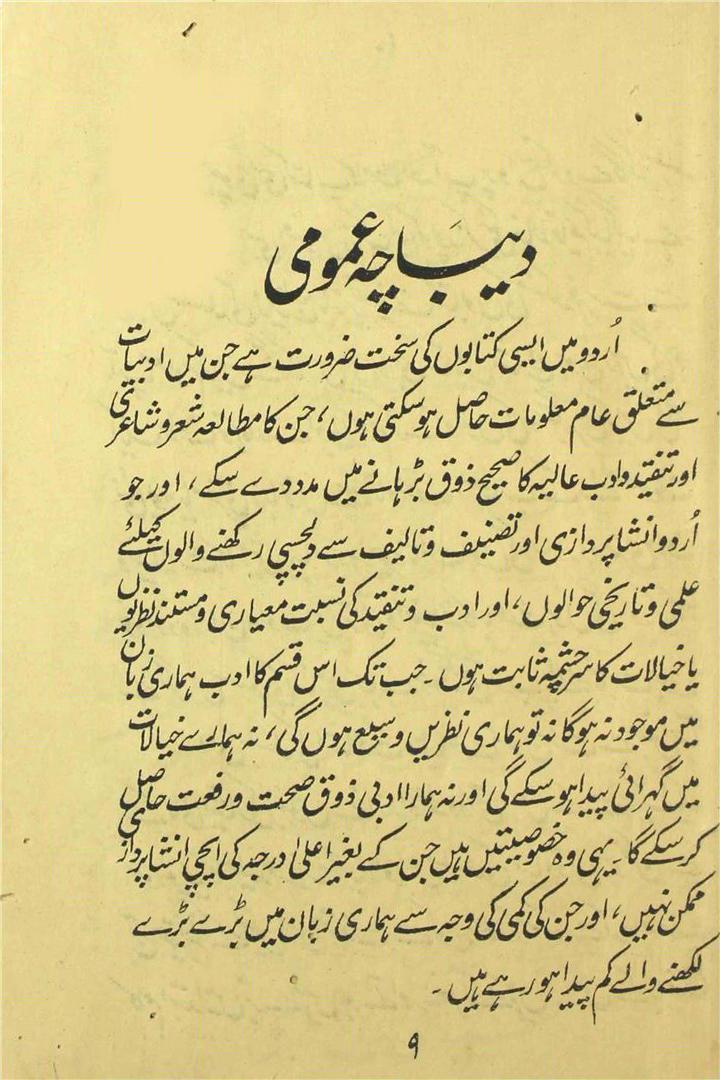 دیباچہ عمومی
اُردو میں ایسی کتابوں کی سخت ضرورت ہے جن میں ادبیات
سے متعلق عام معلومات حاصل ہو سکتی ہوں، جن کا مطالعہ شعر و شاعری
اور تنقید و ادب عالیہ کا صحیح ذوق بڑہانے میں مدد دے سکے، اور جو
اُردو انشا پردازی اور تصنیف و تالیف سے دلچسپی رکھنے والوں کیلئے
علمی و تاریخی حوالوں، اور ادب و تنقید کی نسبت معیاری و مستند نظریوں
یا خیالات کا سرچشمہ ثابت ہوں۔ جب تک اس قسم کا ادب ہماری زبان
میں موجود نہ ہوگا نہ تو ہماری نظریں وسیع ہوں گی، نہ ہمارے خیالات
میں گہرائی پیدا ہو سکے گی اور نہ ہمارا ادبی ذوق صحت و رفعت حاصل
کر سکے گا۔ یہی وہ خصوصیتیں ہیں جن کے بغیر اعلیٰ درجہ کی اچھی انشا پردازی
ممکن نہیں، اور جن کی کمی کی وجہ سے ہماری زبان میں بڑے بڑے
لکھنے والے کم پیدا ہو رہے ہیں۔
۹